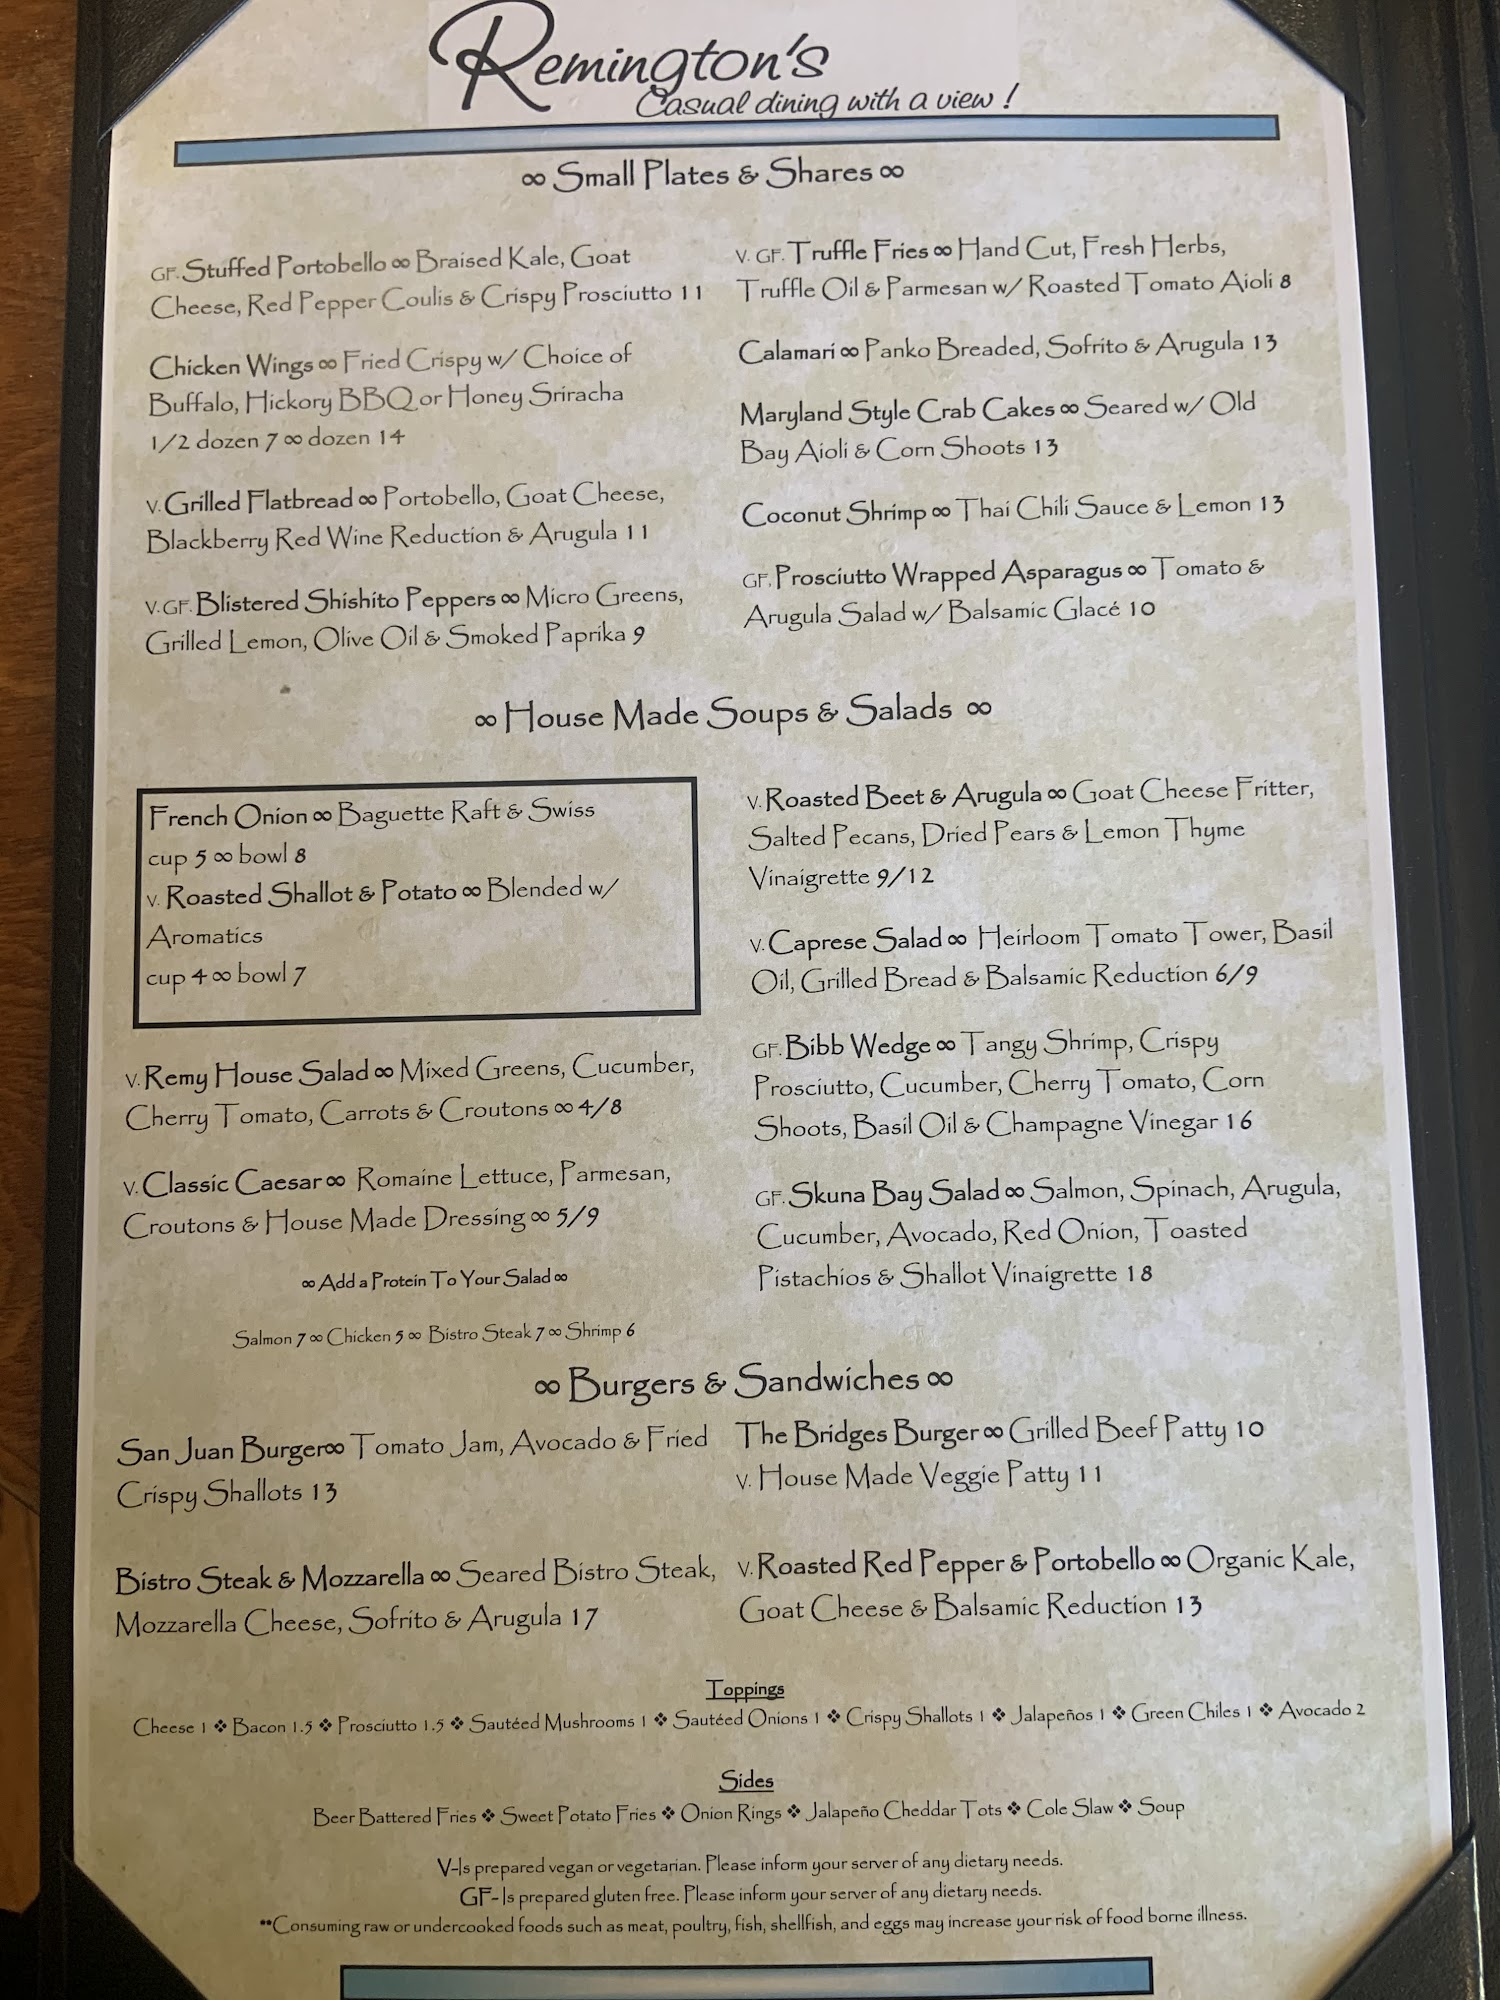 Remington's
Casual dining with a view !
∞ Small Plates & Shares ∞
GF. Stuffed Portobello ∞ Braised Kale, Goat
Cheese, Red Pepper Coulis & Crispy Prosciutto 11
Chicken Wings ∞ Fried Crispy w/ Choice of
Buffalo, Hickory BBQ or Honey Sriracha
1/2 dozen 7 ∞ dozen 14
V. Grilled Flatbread ∞ Portobello, Goat Cheese,
Blackberry Red Wine Reduction & Arugula 11
V. GF. Blistered Shishito Peppers ∞ Micro Greens,
Grilled Lemon, Olive Oil & Smoked Paprika 9
V. GF. Truffle Fries ∞ Hand Cut, Fresh Herbs,
Truffle Oil & Parmesan w/ Roasted Tomato Aioli 8
Calamari ∞ Panko Breaded, Sofrito & Arugula 13
Maryland Style Crab Cakes ∞ Seared w/ Old
Bay Aioli & Corn Shoots 13
Coconut Shrimp ∞ Thai Chili Sauce & Lemon 13
GF. Prosciutto Wrapped Asparagus ∞ Tomato &
Arugula Salad w/ Balsamic Glacé 10
∞ House Made Soups & Salads ∞
French Onion ∞ Baguette Raft & Swiss
cup 5 ∞ bowl 8
V. Roasted Shallot & Potato ∞ Blended w/
Aromatics
cup 4 ∞ bowl 7
V. Remy House Salad ∞ Mixed Greens, Cucumber,
Cherry Tomato, Carrots & Croutons ∞ 4/8
V. Classic Caesar ∞ Romaine Lettuce, Parmesan,
Croutons & House Made Dressing ∞ 5/9
∞ Add a Protein To Your Salad ∞
Salmon 7 ∞ Chicken 5 ∞ Bistro Steak 7 ∞ Shrimp 6
V. Roasted Beet & Arugula ∞ Goat Cheese Fritter,
Salted Pecans, Dried Pears & Lemon Thyme
Vinaigrette 9/12
V. Caprese Salad ∞ Heirloom Tomato Tower, Basil
Oil, Grilled Bread & Balsamic Reduction 6/9
GF. Bibb Wedge ∞ Tangy Shrimp, Crispy
Prosciutto, Cucumber, Cherry Tomato, Corn
Shoots, Basil Oil & Champagne Vinegar 16
GF. Skuna Bay Salad ∞ Salmon, Spinach, Arugula,
Cucumber, Avocado, Red Onion, Toasted
Pistachios & Shallot Vinaigrette 18
∞ Burgers & Sandwiches ∞
San Juan Burger∞ Tomato Jam, Avocado & Fried
Crispy Shallots 13
Bistro Steak & Mozzarella ∞ Seared Bistro Steak,
Mozzarella Cheese, Sofrito & Arugula 17
The Bridges Burger ∞ Grilled Beef Patty 10
V. House Made Veggie Patty 11
V. Roasted Red Pepper & Portobello ∞ Organic Kale,
Goat Cheese & Balsamic Reduction 13
Toppings
Cheese 1 ❖ Bacon 1.5 ❖ Prosciutto 1.5 ❖ Sautéed Mushrooms 1 ❖ Sautéed Onions 1 ❖ Crispy Shallots 1 ❖ Jalapeños 1 ❖ Green Chiles 1 ❖ Avocado 2
Sides
Beer Battered Fries ❖ Sweet Potato Fries ❖ Onion Rings ❖ Jalapeño Cheddar Tots ❖ Cole Slaw ❖ Soup
V-Is prepared vegan or vegetarian. Please inform your server of any dietary needs.
GF- Is prepared gluten free. Please inform your server of any dietary needs.
**Consuming raw or undercooked foods such as meat, poultry, fish, shellfish, and eggs may increase your risk of food borne illness.